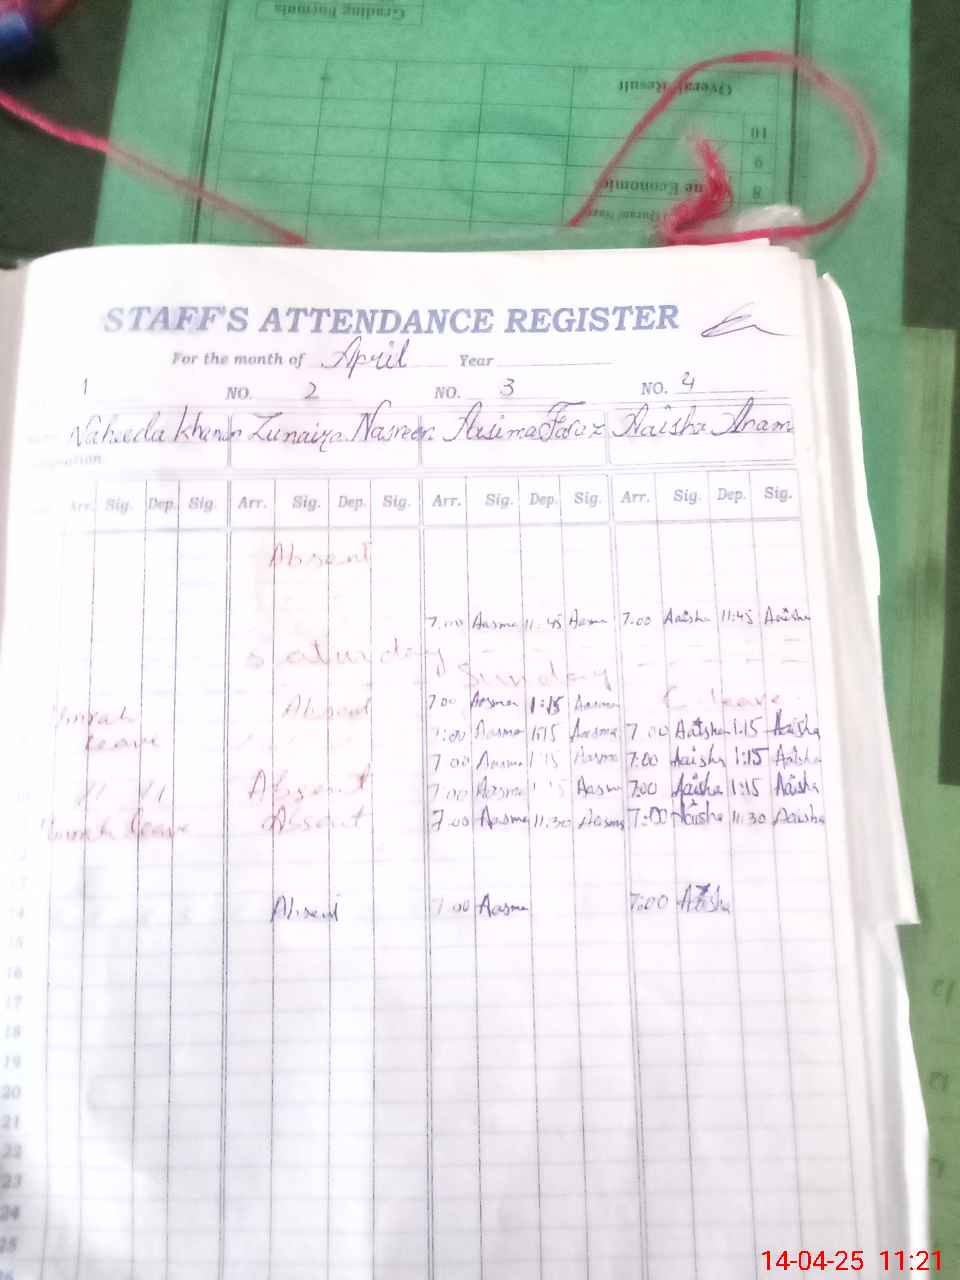 Grading Formula
Overall Result
10
9
8
Economic
STAFF'S ATTENDANCE REGISTER
For the month of April Year
1 NO. 2 NO. 3 NO. 4
Naheeda Khanam Zunaiza Nasreen Asima Faraz Aaisha Anam
Arr. Sig. Dep. Sig. Arr. Sig. Dep. Sig. Arr. Sig. Dep. Sig. Arr. Sig. Dep. Sig.
Absent
7:00 Aasma 11:45 Aasma 7:00 Aaisha 11:45 Aaisha
Saturday
Sunday
Umrah Absent 7:00 Aasma 1:15 Aasma C. leave
leave 7:00 Aasma 1:15 Aasma 7:00 Aaisha 1:15 Aaisha
7:00 Aasma 1:15 Aasma 7:00 Aaisha 1:15 Aaisha
11 11 Absent 7:00 Aasma 1:15 Aasma 7:00 Aaisha 1:15 Aaisha
Umrah leave Absent 7:00 Aasma 11:30 Aasma 7:00 Aaisha 11:30 Aaisha
14 Absent 7:00 Aasma 7:00 Aaisha
15
16
17
18
19
20
21
22
23
24
25
14-04-25 11:21